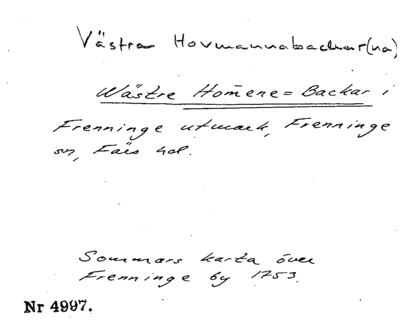 Västra Hovmannabackar(na)
Wästre Homēne=Backar i
Frenninge utmark, Frenninge
sn, Färs hd.
Sommars karta över
Frenninge by 1753.
Nr 4997.